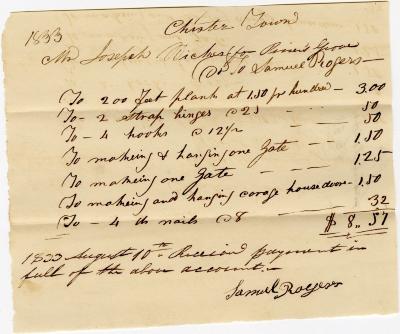 1833 Chester Town
Mr Joseph Wickes for River Grove
Dr To Samuel Rogers
To 200 feet plank at 1.50 pr hundre 3.00
To - 2 strap hinges @ 25 50
To - 4 hooks @ 12 1/2 50
To makeing & hanging one Gate 1.50
To makeing one Gate 1.25
To makeing and hanging carage house doore 1.50
To - 4 lb nails @ 8 32
$ 8.. 57
1833 August 10th Received payment in
full of the above account.
Samuel Rogers